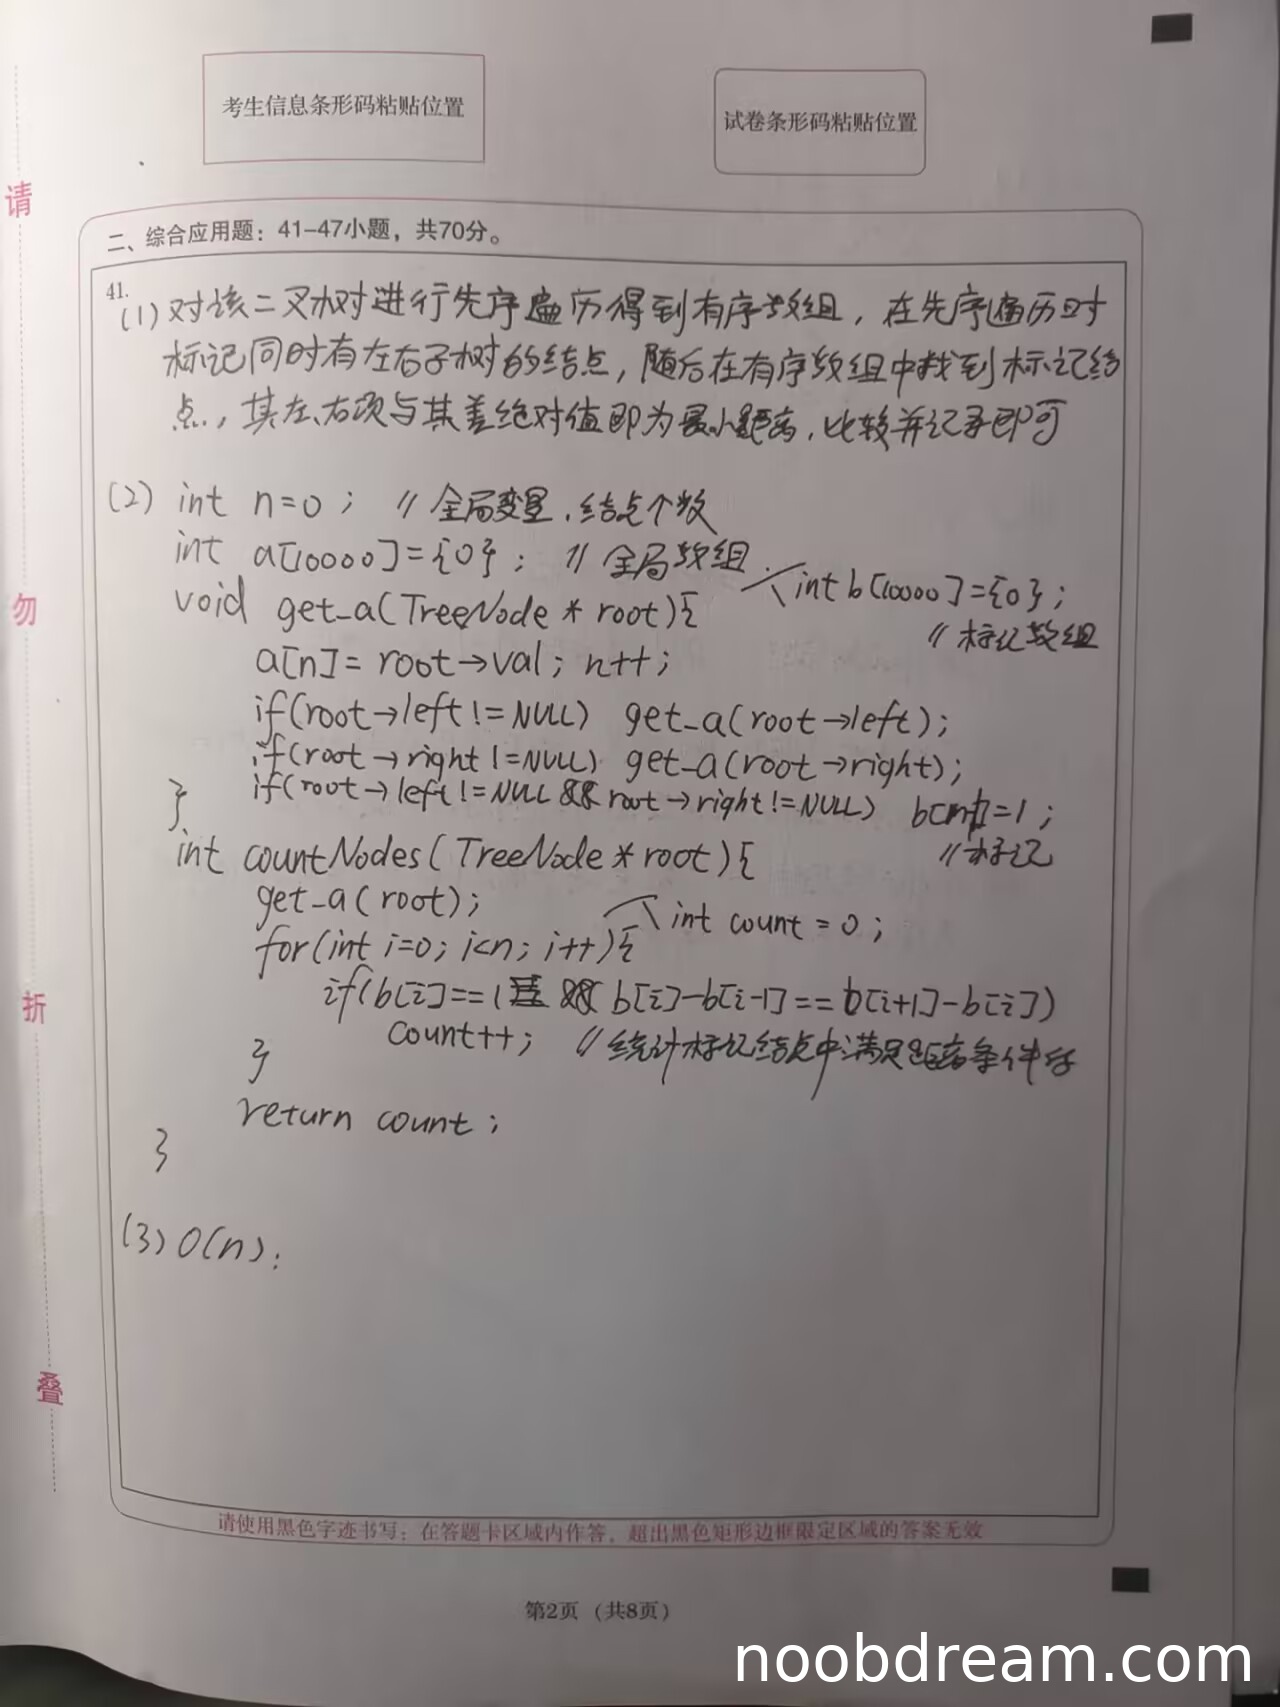 考生信息条形码粘贴位置
试卷条形码粘贴位置
请
勿
折
叠
二、综合应用题：41-47小题，共70分。
41.
(1) 对该二叉树进行先序遍历得到有序数组，在先序遍历时
标记同时有左右子树的结点，随后在有序数组中找到标记结
点，其左、右项与其差绝对值即为最小距离，比较并记录即可
(2) int n=0； // 全局变量，结点个数
int a[10000]={0}； // 全局数组
int b[10000]={0}；
void get_a(TreeNode * root){
// 标记数组
a[n]= root→val； n++；
if(root→left != NULL) get_a(root→left)；
if(root→right !=NULL) get_a(root→right)；
if(root→left!=NULL && root→right!=NULL) b[n]=1；
}
// 标记
int countNodes(TreeNode * root){
get_a(root)；
int count = 0；
for(int i=0；i<n；i++){
if(b[i]==1 && b[i]-b[i-1]==b[i+1]-b[i])
count++； // 统计标记结点中满足距离条件的
}
return count；
}
(3) O(n)；
请使用黑色字迹书写：在答题卡区域内作答，超出黑色矩形边框限定区域的答案无效
第2页（共8页）
noobdream.com